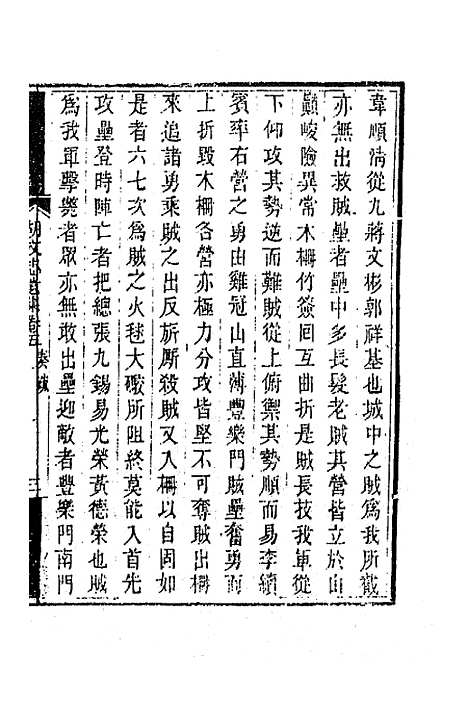 韋順清從九蔣文彬郭祥基也城中之賊爲我所截
亦無出救賊壘者壘中多長髮老賊其營皆立於山
巓峻險異常木柵竹簽回互曲折是賊長技我軍從
下仰攻其勢逆而難賊從上俯禦其勢順而易李續
賓率右營之勇由雞冠山直薄豐樂門賊壘奮勇而
上折毀木柵各營亦極力分攻皆堅不可奪賊出柵
來追諸勇乘賊之出反旆厮殺賊又入柵以自固如
是者六七次爲賊之火毬大礮所阻終莫能入首先
攻壘登時陣亡者把總張九錫易光榮黃德榮也賊
爲我軍擊斃者眾亦無敢出壘迎敵者豐樂門南門
胡文忠 奏議 三